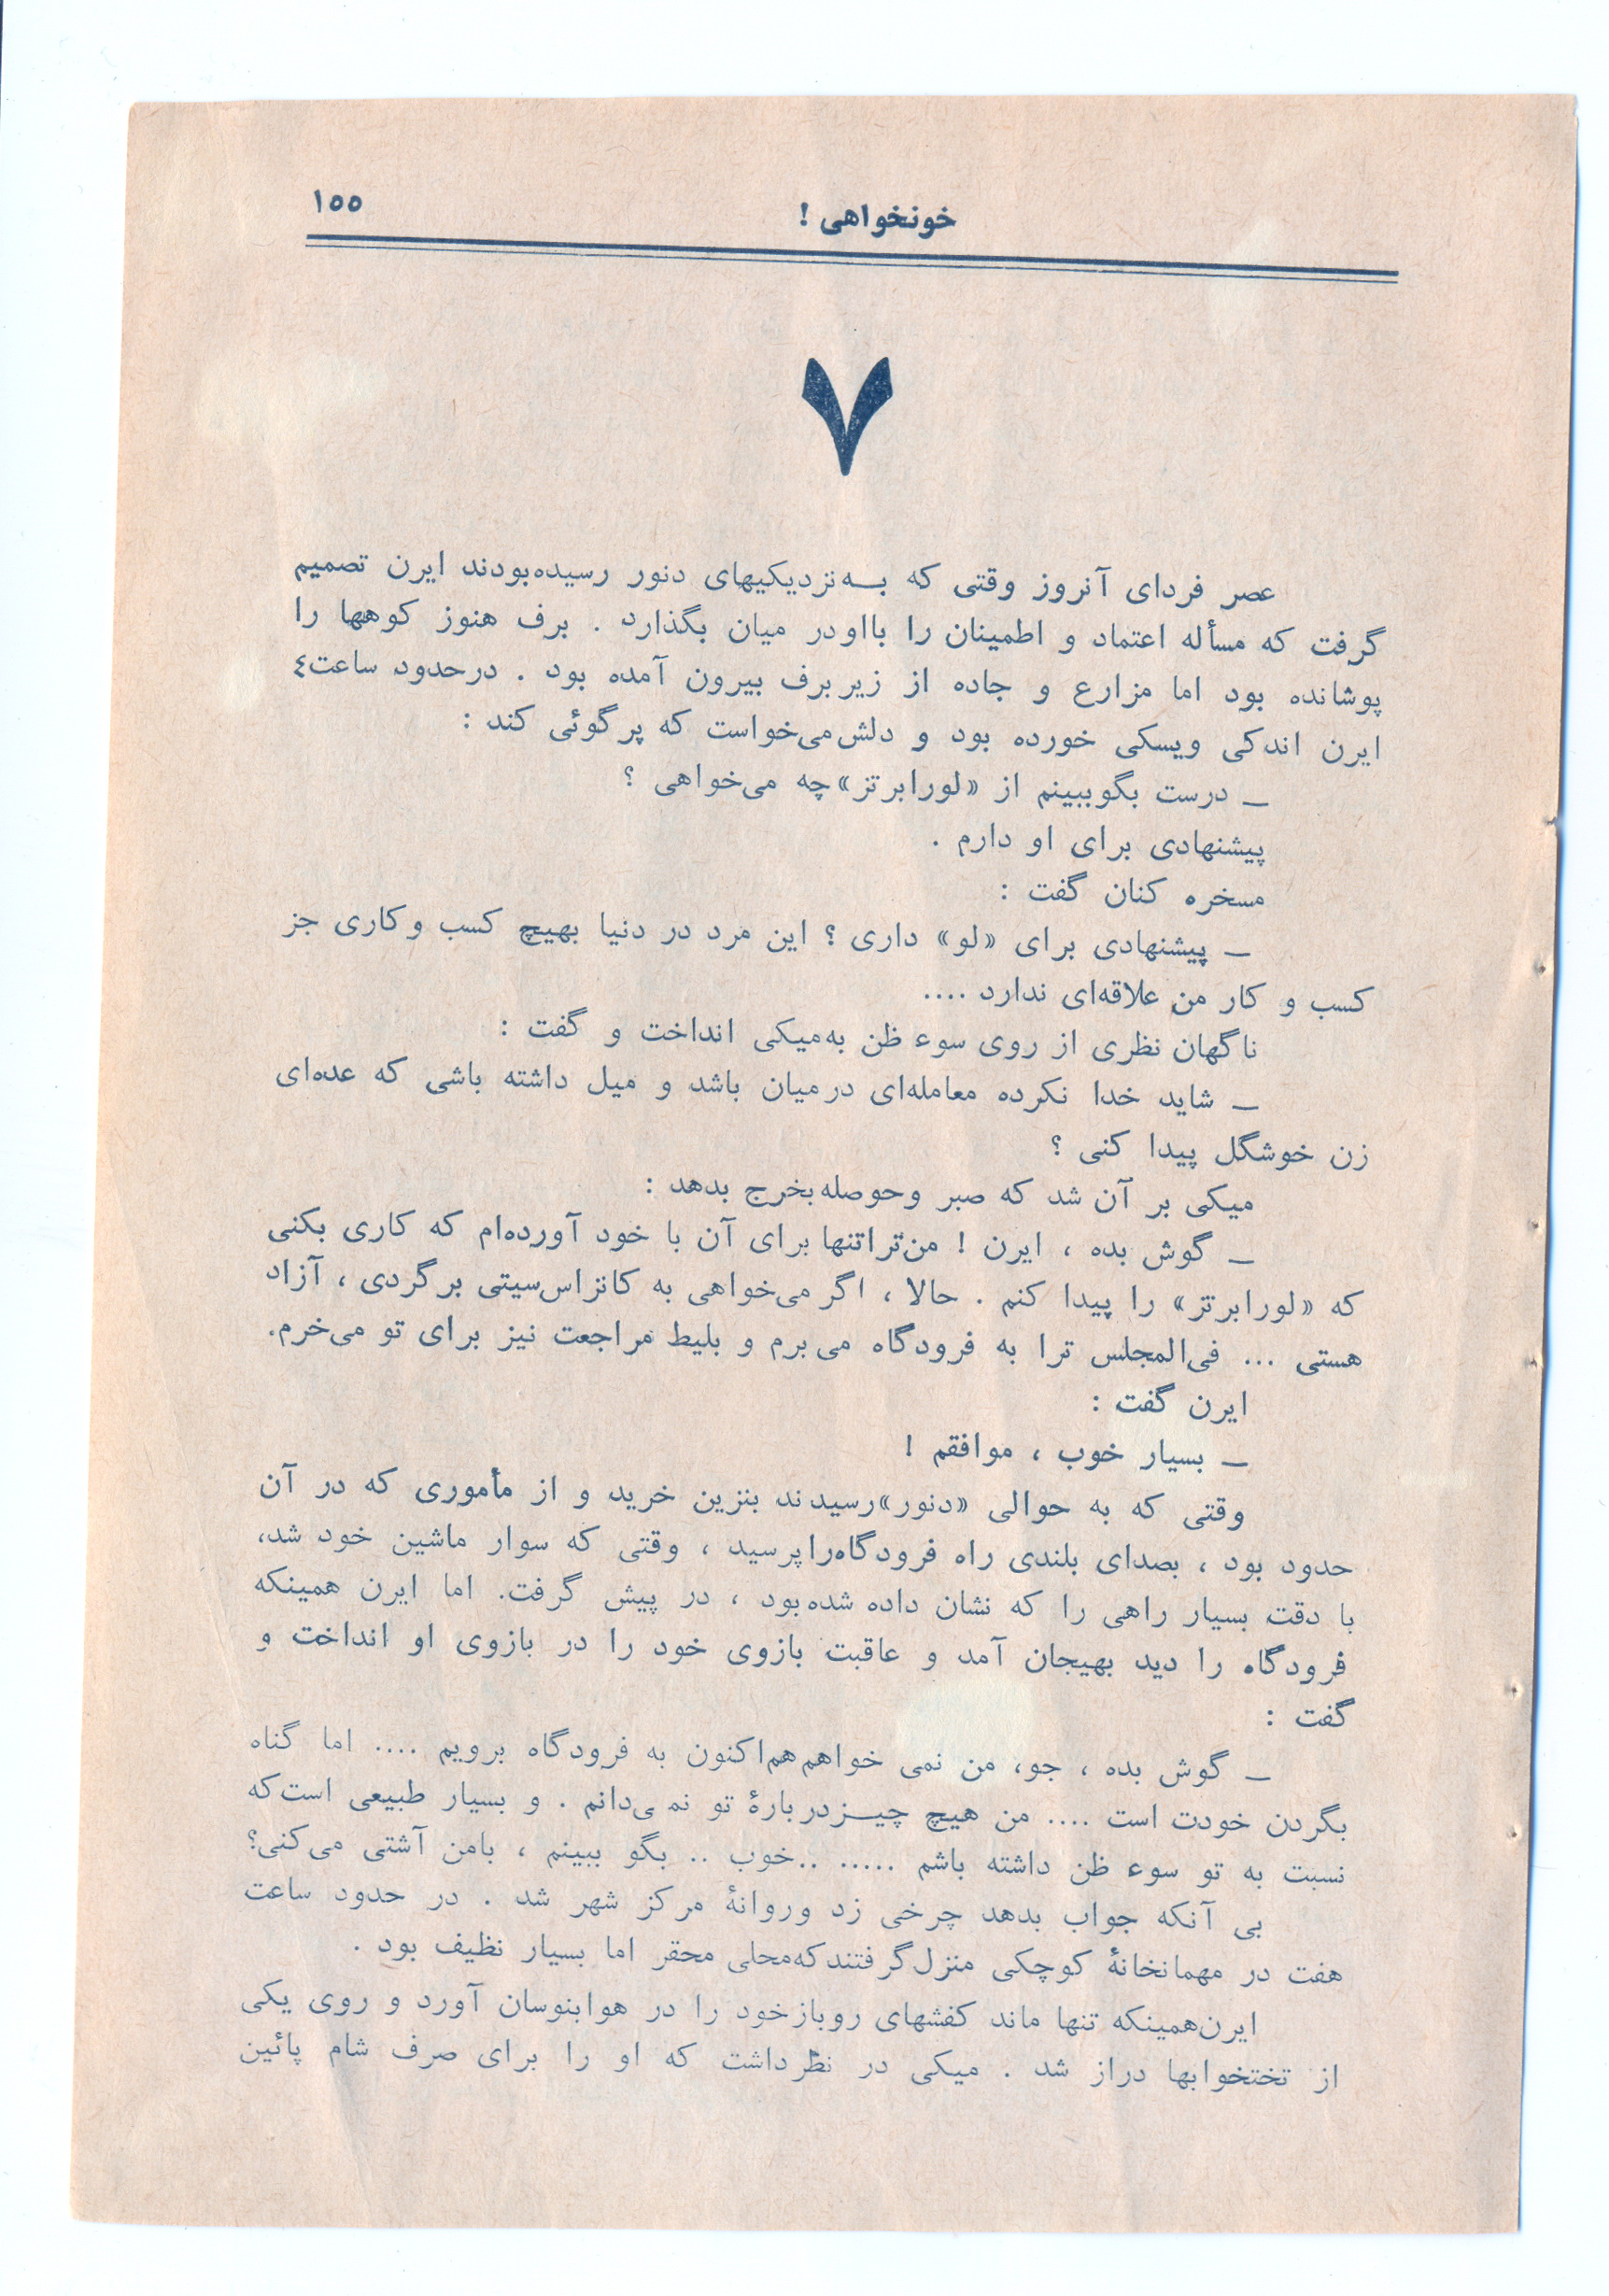 خونخواهی !
۱۵۵
۷
عصر فردای آنروز وقتی که به نزدیکیهای دنور رسیده بودند ایرن تصمیم
گرفت که مسأله اعتماد و اطمینان را بااو در میان بگذارد . برف هنوز کوهها را
پوشانده بود اما مزارع و جاده از زیر برف بیرون آمده بود . درحدود ساعت٤
ایرن اندکی ویسکی خورده بود و دلش می‌خواست که پر گوئی کند :
ــ درست بگو ببینم از «لورابرتز» چه می‌خواهی ؟
پیشنهادی برای او دارم .
مسخره کنان گفت :
ــ پیشنهادی برای «لو» داری ؟ این مرد در دنیا بهیچ کسب و کاری جز
کسب و کار من علاقه‌ای ندارد ....
ناگهان نظری از روی سوء ظن به میکی انداخت و گفت :
ــ شاید خدا نکرده معامله‌ای درمیان باشد و میل داشته باشی که عده‌ای
زن خوشگل پیدا کنی ؟
میکی بر آن شد که صبر و حوصله بخرج بدهد :
ــ گوش بده ، ایرن ! من ترا تنها برای آن با خود آورده‌ام که کاری بکنی
که «لورابرتز» را پیدا کنم . حالا ، اگر می‌خواهی به کانزاس‌سیتی برگردی ، آزاد
هستی ... فی‌المجلس ترا به فرودگاه می برم و بلیط مراجعت نیز برای تو می‌خرم.
ایرن گفت :
ــ بسیار خوب ، موافقم !
وقتی که به حوالی «دنور» رسیدند بنزین خرید و از مأموری که در آن
حدود بود ، بصدای بلندی راه فرودگاه را پرسید ، وقتی که سوار ماشین خود شد،
با دقت بسیار راهی را که نشان داده شده بود ، در پیش گرفت. اما ایرن همینکه
فرودگاه را دید بهیجان آمد و عاقبت بازوی خود را در بازوی او انداخت و
گفت :
ــ گوش بده ، جو، من نمی خواهم هم‌اکنون به فرودگاه برویم .... اما گناه
بگردن خودت است .... من هیچ چیز دربارهٔ تو نمی‌دانم . و بسیار طبیعی است که
نسبت به تو سوء ظن داشته باشم ..... ..خوب .. بگو ببینم ، بامن آشتی می‌کنی؟
بی آنکه جواب بدهد چرخی زد و روانهٔ مرکز شهر شد . در حدود ساعت
هفت در مهمانخانهٔ کوچکی منزل گرفتند که محلی محقر اما بسیار نظیف بود .
ایرن همینکه تنها ماند کفشهای روباز خود را در هوا بنوسان آورد و روی یکی
از تختخوابها دراز شد . میکی در نظر داشت که او را برای صرف شام پائین